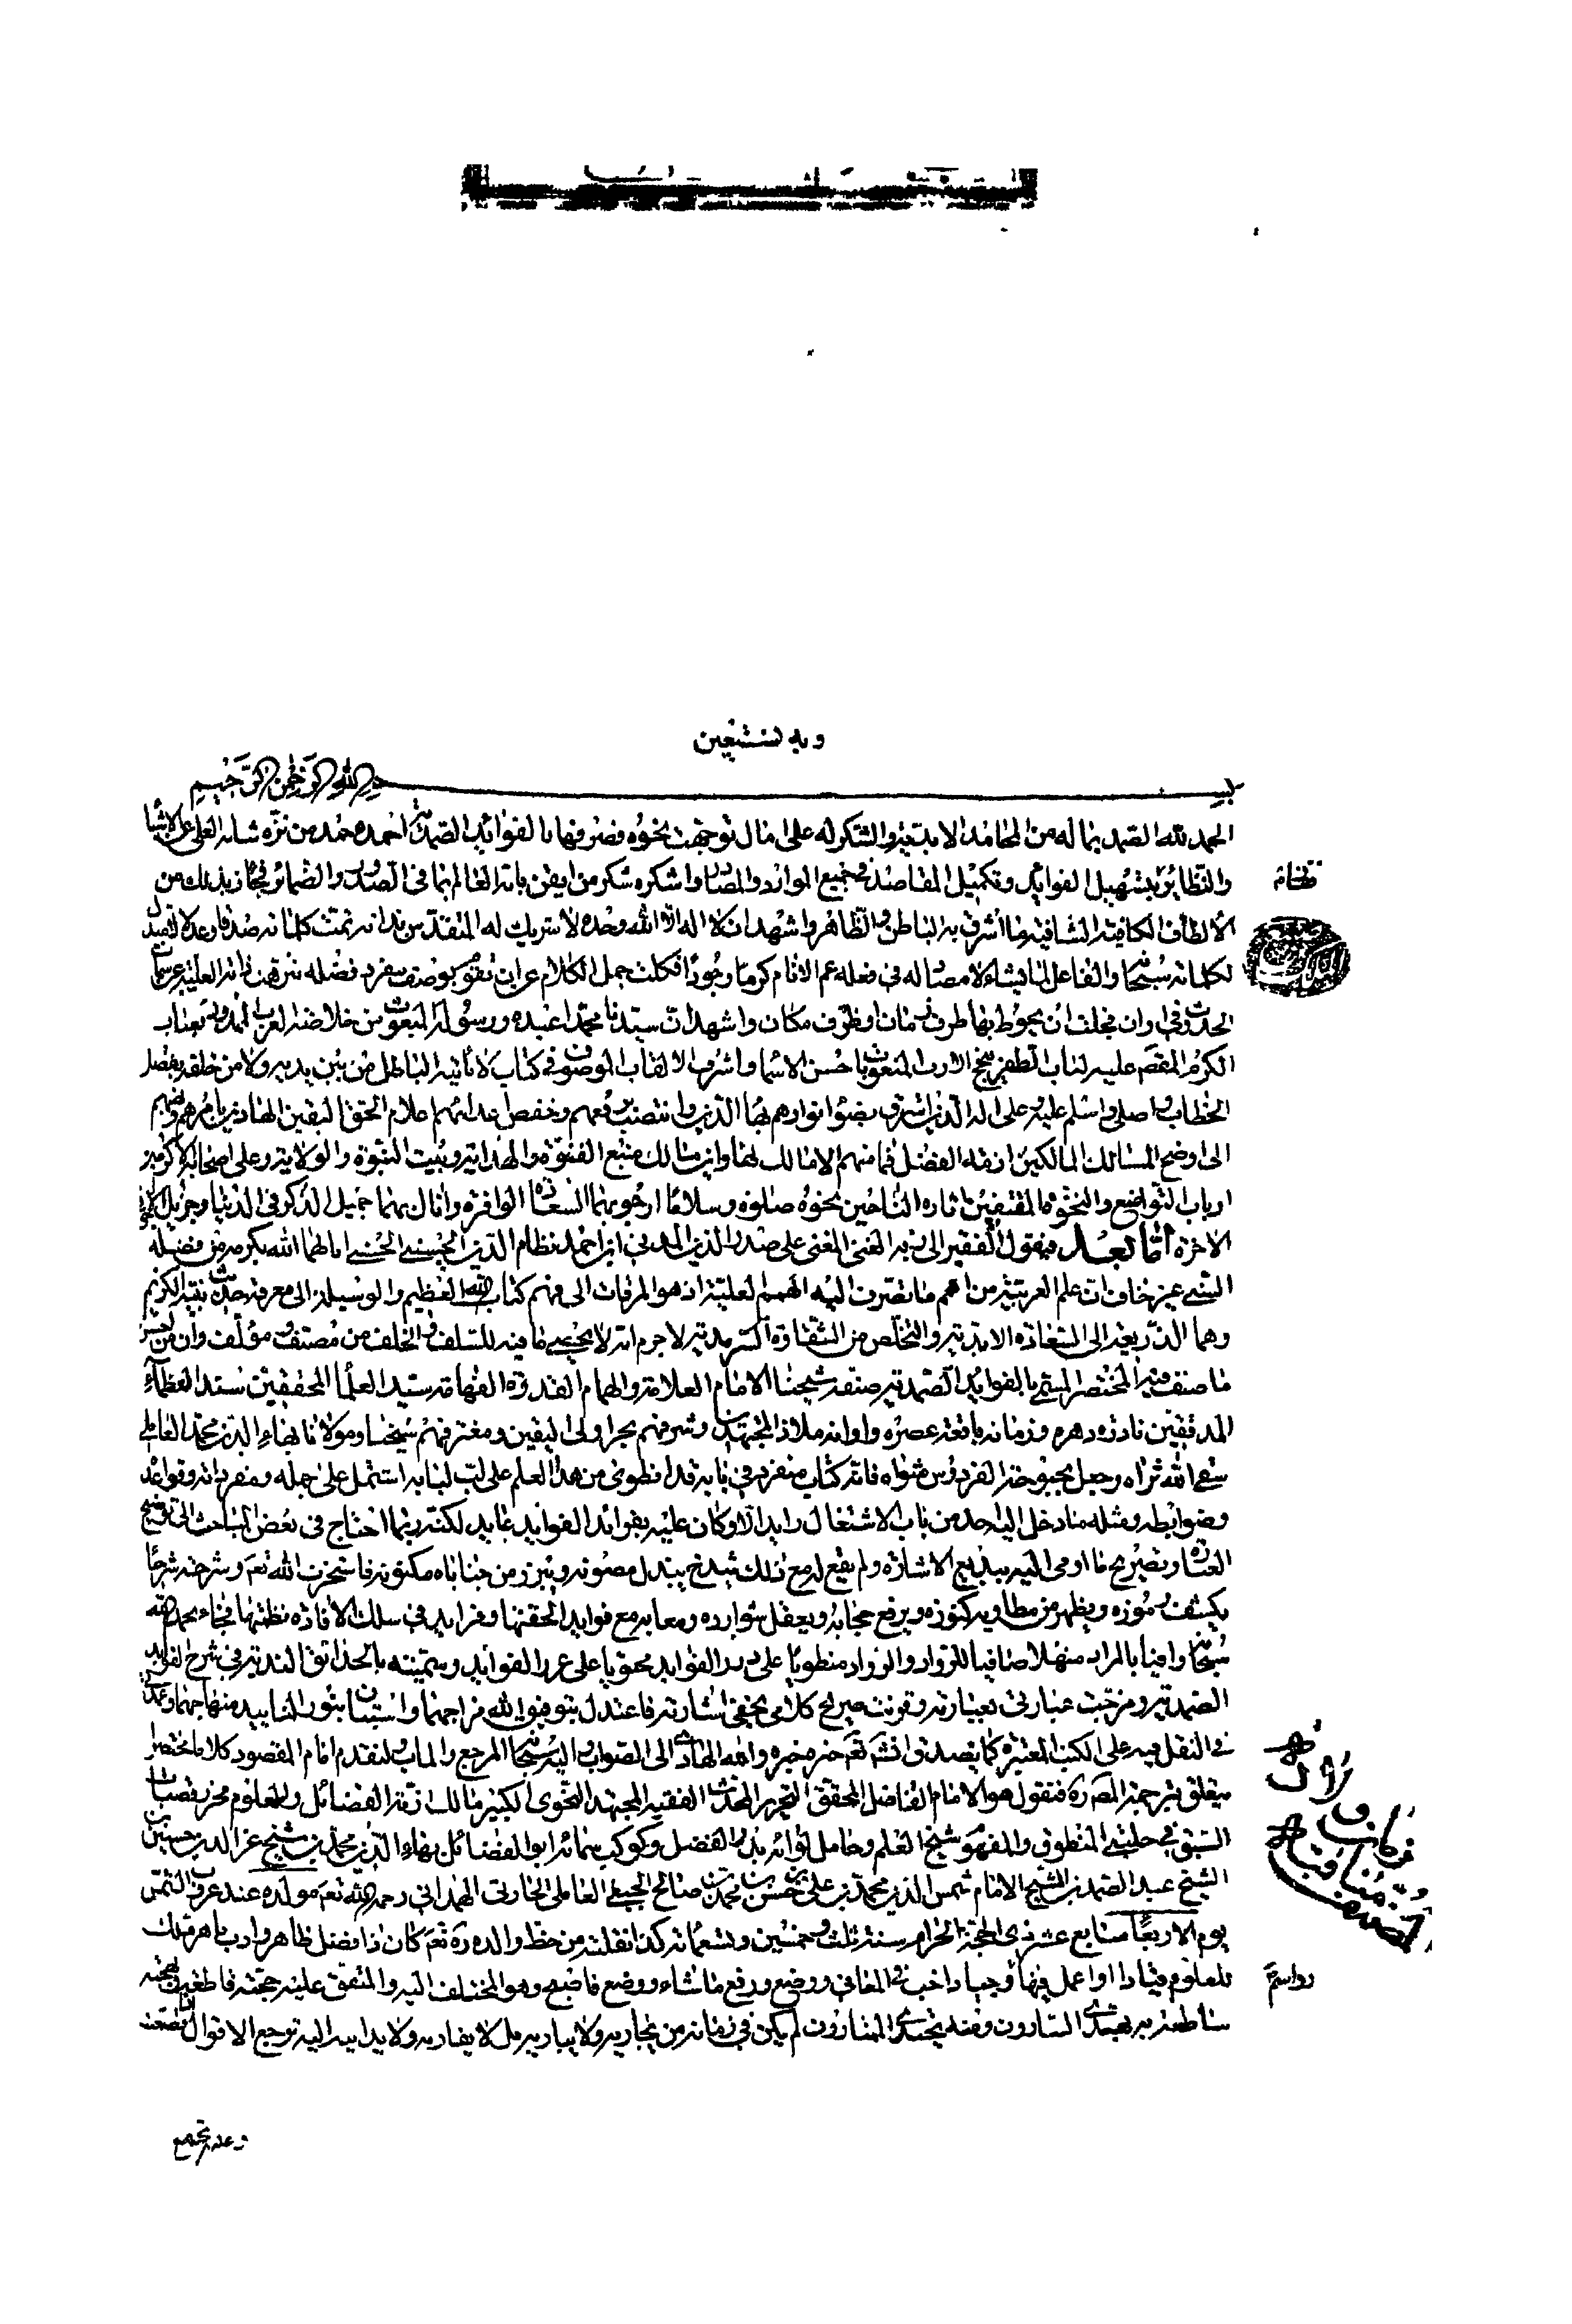 وبه نستعين
بسم الله الرحمن الرحيم
الحمد لله الصمد بما له من المحامد الابدية والشكر له على امال توجهت نحوه فصرفها بالفوائد الصمدية احمده حمد من نزه شانه العلي عن الاشباه
والنظائر بتسهيل الفوائد وتكميل المقاصد في جميع الموارد والمصادر واشكره شكر من ايقن بانه العالم بما في الصدور والضمائر فجاز بذلك من
الالطاف الكافية الشافية ما اشرف به الباطن والظاهر واشهد ان لا اله الا الله وحده لا شريك له المتقدس بذاته تمت كلماته صدقا وعدلا لا تبديل
لكلماته سبحانه والفاعل لما يشاء لا مضارع له في فعله عم الانام كرما وجودا فكلت جمل الكلام عن ان تقوم بوصف مفرد فضله تنزهت ذاته العلية عن سمات
الحدوث وان يحوط بها ظرف زمان او ظرف مكان واشهد ان سيدنا محمدا عبده ورسوله المبعوث من خلاصة العرب
الكرم عليه الارب المنعوت باحسن الاسماء واشرف الالقاب الموصوف في كتاب لا ياتيه الباطل من بين يديه ولا من خلفه بفصل
الخطاب واصلي واسلم عليه وعلى اله الذين اشرق بضوء انوارهم الدين وانتصب برفعهم وخفض اعدائهم اعلام الحق اليقين الهادين
الى اوضح المسالك لمالكين ازمة الفضل فما منهم الا مالك لها وابن مالك منبع الفتوة والهداية وبيت النبوة والولاية وعلى اصحابه الاكرمين
ارباب التواضع والنخوة المقتفين اثاره الناحين نحوه صلوة وسلاما ارجو بهما السعادة الوافرة وانال بهما جميل الذكر في الدنيا وجزيل الاجر في
الاخرة اما بعد فيقول الفقير الى ربه الغني المغني علي صدر الدين المدني ابن احمد نظام الدين الحسيني الحسني انالهما الله بكرمه من فضله
السني غير خاف ان علم العربية من اهم ما تصرف اليه الهمم العلية اذ هو المرقاة الى فهم كتاب الله العظيم والوسيلة الى معرفة حديث نبيه الكريم
وهما الذريعة الى السعادة الابدية والتخلص من الشقاوة السرمدية لا جرم انه لا يحصى ما فيه للسلف والخلف من مصنف ومؤلف وان من احسن
ما صنف فيه المختصر المسمى بالفوائد الصمدية صنفه شيخنا الامام العلامة والهمام القدوة الفهامة سيد العلماء المحققين سند العظماء
المدققين نادرة دهره وزمانه باقعة عصره واوانه ملاذ المجتهدين وشرفهم بحر اولي اليقين ومغترفهم شيخنا ومولانا بهاء الدين محمد العاملي
سقى الله ثراه وجعل بحبوحة الفردوس مثواه فانه كتاب منفرد في بابه قد انطوى من هذا العلم على لب لبابه اشتمل على جمله ومفرداته وقواعده
وضوابطه ومثله ما دخل اليه احد من باب الاشتغال رايد الا وكان عليه بفوائد الفوايد عايد لكنه ربما احتاج في بعض المباحث الى توضيح
العبارة وتصريح ما اومى اليه ببديع الاشارة ولم يقع له مع ذلك شرح يبتذل مصونه ويبرز من خباياه مكنونه فاستخرت الله تعم وشرحته شرحا
يكشف رموزه ويظهر من مطاويه كنوزه ويرفع حجابه ويعقل شوارده ومعابه مع فوايد الحقتها وفرايد في سلك الافادة نظمتها فجاء بحمد الله
سبحانه وافيا بالمراد منهلا صافيا للرواد والوراد منطويا على درر الفوايد محتويا على غرر الفوايد وسميته بالحدائق الندية في شرح الفوايد
الصمدية ومزجت عبارتي بعبارته وقرنت صريح كلامي بخفي اشارته فاعتدل بتوفيق الله مزاجهما
في النقل فيه على الكتب المعتبرة كما يصدق ان شاء تعم خبره مخبره والله الهادي الى الصواب واليه سبحانه المرجع والماب ولنقدم امام المقصود كلاما مختصرا
يتعلق بترجمة المص ره فنقول هو الامام الفاضل المحقق النحرير المحدث الفقيه المجتهد النحوي الكبير مالك ازمة الفضائل والعلوم محرز قصبات
السبق في حلبتي المنطوق والمفهوم شيخ العلم وحامل لوائه بدر الفضل وكوكب سمائه ابو الفضائل بهاء الدين محمد بن الشيخ عز الدين حسين بن
الشيخ عبد الصمد بن الشيخ الامام شمس الدين محمد بن علي بن حسن بن محمد بن صالح الجبعي العاملي الحارثي الهمداني رحمه الله تعم مولده عند غروب الشمس
يوم الاربعاء سابع عشر ذي الحجة الحرام سنة ثلث وخمسين وتسعمائة كذا نقلته من خط والده ره تعم كان ذا فضل ظاهر وادب باهر ملك
للعلوم قيادا
ساطعة به يهتدي السارون وفيه يجتدي الممتارون لم يكن في زمانه من يجاريه ولا يباريه بل لا يقاربه ولا يدانيه اليه ترجع الاقوال
وعنه تجمع